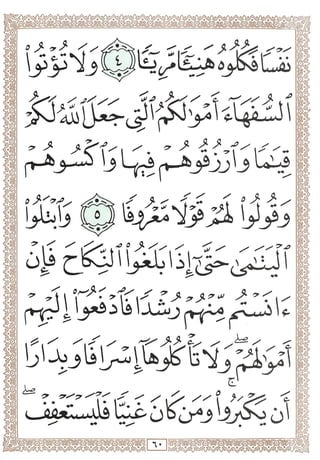 نَفْسًا فَكُلُوهُ هَنِيٓـًٔا مَّرِيٓـًٔا ٤ وَلَا تُؤْتُوا۟
ٱلسُّفَهَآءَ أَمْوَٰلَكُمُ ٱلَّتِى جَعَلَ ٱللَّهُ لَكُمْ
قِيَٰمًا وَٱرْزُقُوهُمْ فِيهَا وَٱكْسُوهُمْ
وَقُولُوا۟ لَهُمْ قَوْلًا مَّعْرُوفًا ٥ وَٱبْتَلُوا۟
ٱلْيَتَٰمَىٰ حَتَّىٰٓ إِذَا بَلَغُوا۟ ٱلنِّكَاحَ فَإِنْ
ءَانَسْتُم مِّنْهُمْ رُشْدًا فَٱدْفَعُوٓا۟ إِلَيْهِمْ
أَمْوَٰلَهُمْ ۖ وَلَا تَأْكُلُوهَآ إِسْرَافًا وَبِدَارًا
أَن يَكْبَرُوا۟ ۚ وَمَن كَانَ غَنِيًّا فَلْيَسْتَعْفِفْ ۖ
٦٠